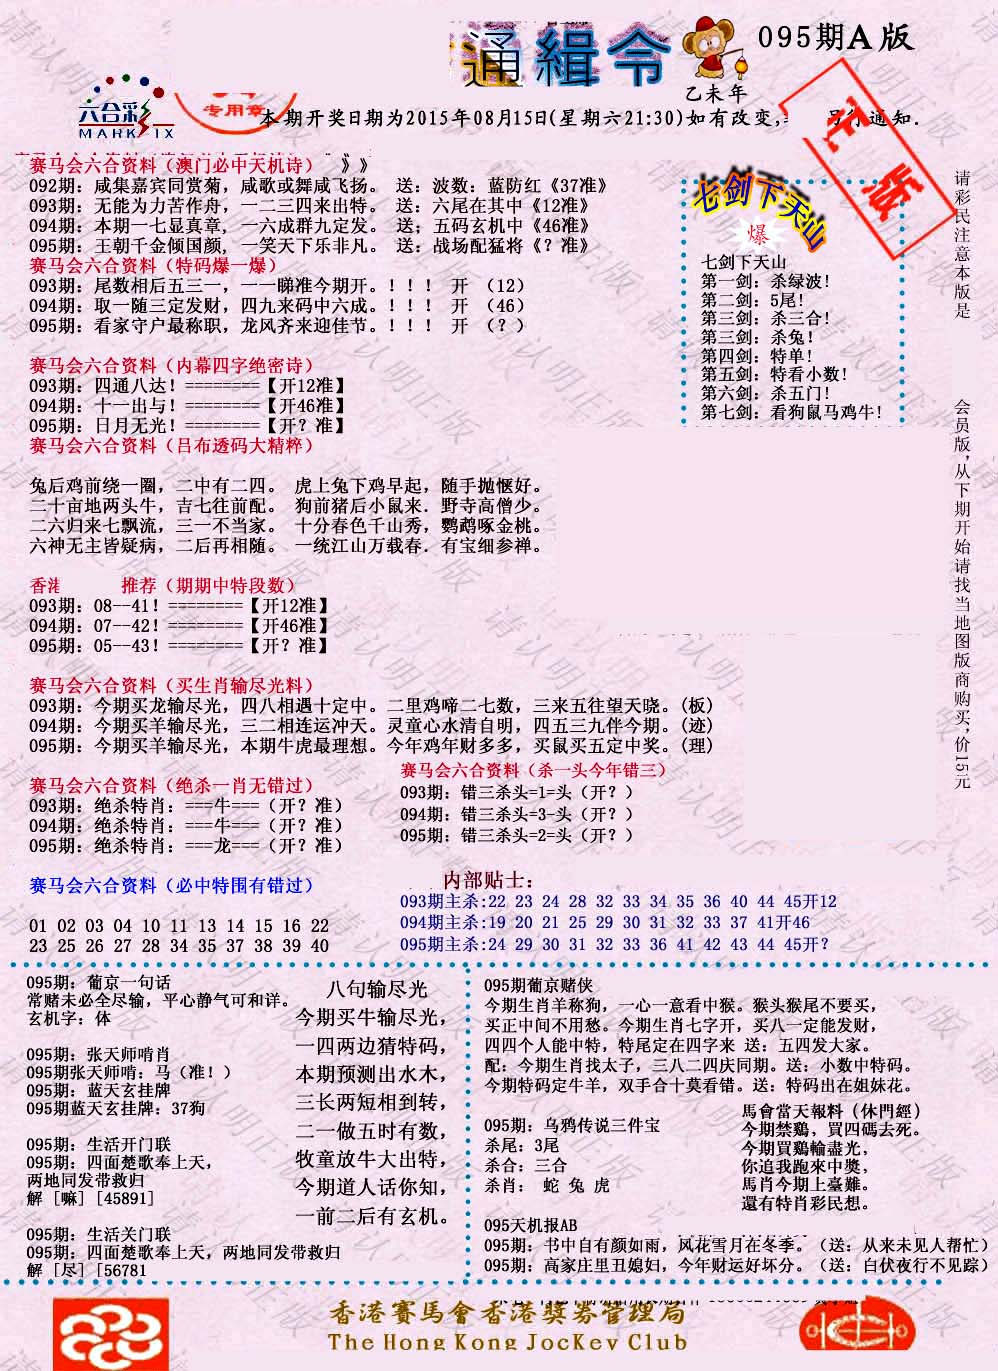 通緝令
095期A版
乙未年
六合彩
MARK SIX
专用章
本期开奖日期为2015年08月15日(星期六21:30)如有改变,
通知.
赛马会六合资料（澳门必中天机诗） 》》
092期: 咸集嘉宾同赏菊, 咸歌或舞咸飞扬。 送: 波数: 蓝防红《37准》
093期: 无能为力苦作舟, 一二三四来出特。 送: 六尾在其中《12准》
094期: 本期一七显真章, 一六成群九定发。 送; 五码玄机中《46准》
095期: 王朝千金倾国颜, 一笑天下乐非凡。 送: 战场配猛将《? 准》
赛马会六合资料（特码爆一爆）
093期: 尾数相后五三一, 一一睇准今期开。！！！ 开 （12）
094期: 取一随三定发财, 四九来码中六成。！！！ 开 （46）
095期: 看家守户最称职, 龙风齐来迎佳节。！！！ 开 （?）
七剑下天山
爆
七剑下天山
第一剑: 杀绿波!
第二剑: 5尾!
第三剑: 杀三合!
第三剑: 杀兔!
第四剑: 特单!
第五剑: 特看小数!
第六剑: 杀五门!
第七剑: 看狗鼠马鸡牛!
请彩民注意本版是
会员版,从下期开始请找当地图版商购买,价15元
赛马会六合资料（内幕四字绝密诗）
093期: 四通八达! ========【开12准】
094期: 十一出与! ========【开46准】
095期: 日月无光! ========【开? 准】
赛马会六合资料（吕布透码大精粹）
兔后鸡前绕一圈, 二中有二四。 虎上兔下鸡早起, 随手抛惬好。
二十亩地两头牛, 吉七往前配。 狗前猪后小鼠来. 野寺高僧少。
二六归来七飘流, 三一不当家。 十分春色千山秀, 鹦鹉啄金桃。
六神无主皆疑病, 二后再相随。 一统江山万载春. 有宝细参禅。
香港 推荐（期期中特段数）
093期: 08--41! ========【开12准】
094期: 07--42! ========【开46准】
095期: 05--43! ========【开? 准】
赛马会六合资料（买生肖输尽光料）
093期: 今期买龙输尽光, 四八相遇十定中。二里鸡啼二七数, 三来五往望天晓。(板)
094期: 今期买羊输尽光, 三二相连运冲天。灵童心水清自明, 四五三九伴今期。(迹)
095期: 今期买羊输尽光, 本期牛虎最理想。今年鸡年财多多, 买鼠买五定中奖。(理)
赛马会六合资料（绝杀一肖无错过）
093期: 绝杀特肖: ===牛===（开? 准）
094期: 绝杀特肖: ===牛===（开? 准）
095期: 绝杀特肖: ===龙===（开? 准）
赛马会六合资料（杀一头今年错三）
093期: 错三杀头=1=头（开? ）
094期: 错三杀头=3-头（开? ）
095期: 错三杀头=2=头（开? ）
赛马会六合资料（必中特围有错过）
01 02 03 04 10 11 13 14 15 16 22
23 25 26 27 28 34 35 37 38 39 40
内部贴士:
093期主杀:22 23 24 28 32 33 34 35 36 40 44 45开12
094期主杀:19 20 21 25 29 30 31 32 33 37 41开46
095期主杀:24 29 30 31 32 33 36 41 42 43 44 45开?
095期: 葡京一句话
常赌未必全尽输, 平心静气可和详。
玄机字: 体
095期: 张天师啃肖
095期张天师啃: 马（准! ）
095期: 蓝天玄挂牌
095期蓝天玄挂牌: 37狗
095期: 生活开门联
095期: 四面楚歌奉上天,
两地同发带救归
解 [嘛] [45891]
095期: 生活关门联
095期: 四面楚歌奉上天, 两地同发带救归
解 [尽] [56781
八句输尽光
今期买牛输尽光,
一四两边猜特码,
本期预测出水木,
三长两短相到转,
二一做五时有数,
牧童放牛大出特,
今期道人话你知,
一前二后有玄机。
095期葡京赌侠
今期生肖羊称狗, 一心一意看中猴。猴头猴尾不要买,
买正中间不用愁。今期生肖七字开, 买八一定能发财,
四四个人能中特, 特尾定在四字来 送: 五四发大家。
配: 今期生肖找太子, 三八二四庆同期。送: 小数中特码。
今期特码定牛羊, 双手合十莫看错。送: 特码出在姐妹花。
095期: 乌鸦传说三件宝
杀尾: 3尾
杀合: 三合
杀肖: 蛇 兔 虎
馬會當天報料（休門經）
今期禁鷄, 買四碼去死。
今期買鷄輸盡光,
你追我跑來中獎,
馬肖今期上臺難。
還有特肖彩民想。
095天机报AB
095期: 书中自有颜如雨, 风花雪月在冬季。（送: 从来未见人帮忙）
095期: 高家庄里丑媳妇, 今年财运好坏分。（送: 白伏夜行不见踪）
香港賽馬會香港獎券管理局
The Hong Kong JocKey Club